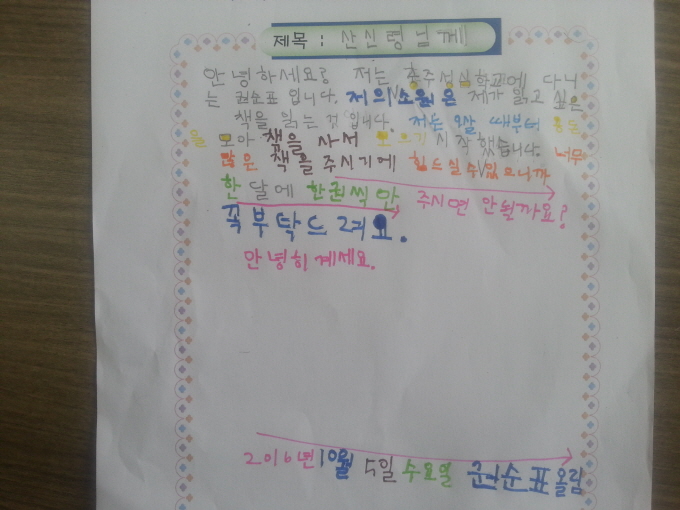 제목 : 산신령님께
안녕하세요? 저는 충주성심학교에 다니
는 권순표 입니다. 저의 소원은 제가 읽고 싶은
책을 읽는 것 입니다. 저는 오살 때부터 용돈
을 모아 책을 사서 모으기 시작했습니다. 너무
많은 책을 주시기에 힘드실 수 있으니까
한 달에 한권씩 만 주시면 안될까요?
꼭 부탁드려요.
안녕히 계세요.
2016년 10월 5일 수요일 권순표 올림